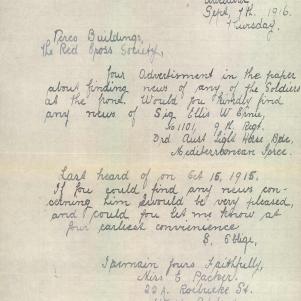 Adelaide
Sept, 7th, 1916.
Thursday.
Verco Buildings,
The Red Cross Society,
Your Advertisment in the paper
about finding news of any of the Soldiers
at the front. Would you kindly find
any news of Sig Ellis W Ernie,
No 1101, 9 th. Regt.
3rd Aust Light Horse Bde,
Mediterranean Force.
Last heard of on Oct 15, 1915.
If you could find any news con-
cerning him I would be very pleased,
and could you let me know at
your earliest convenience
& Oblige.
I remain Yours Faithfully,
Miss E. Packer.
22 A. Roebucke St.